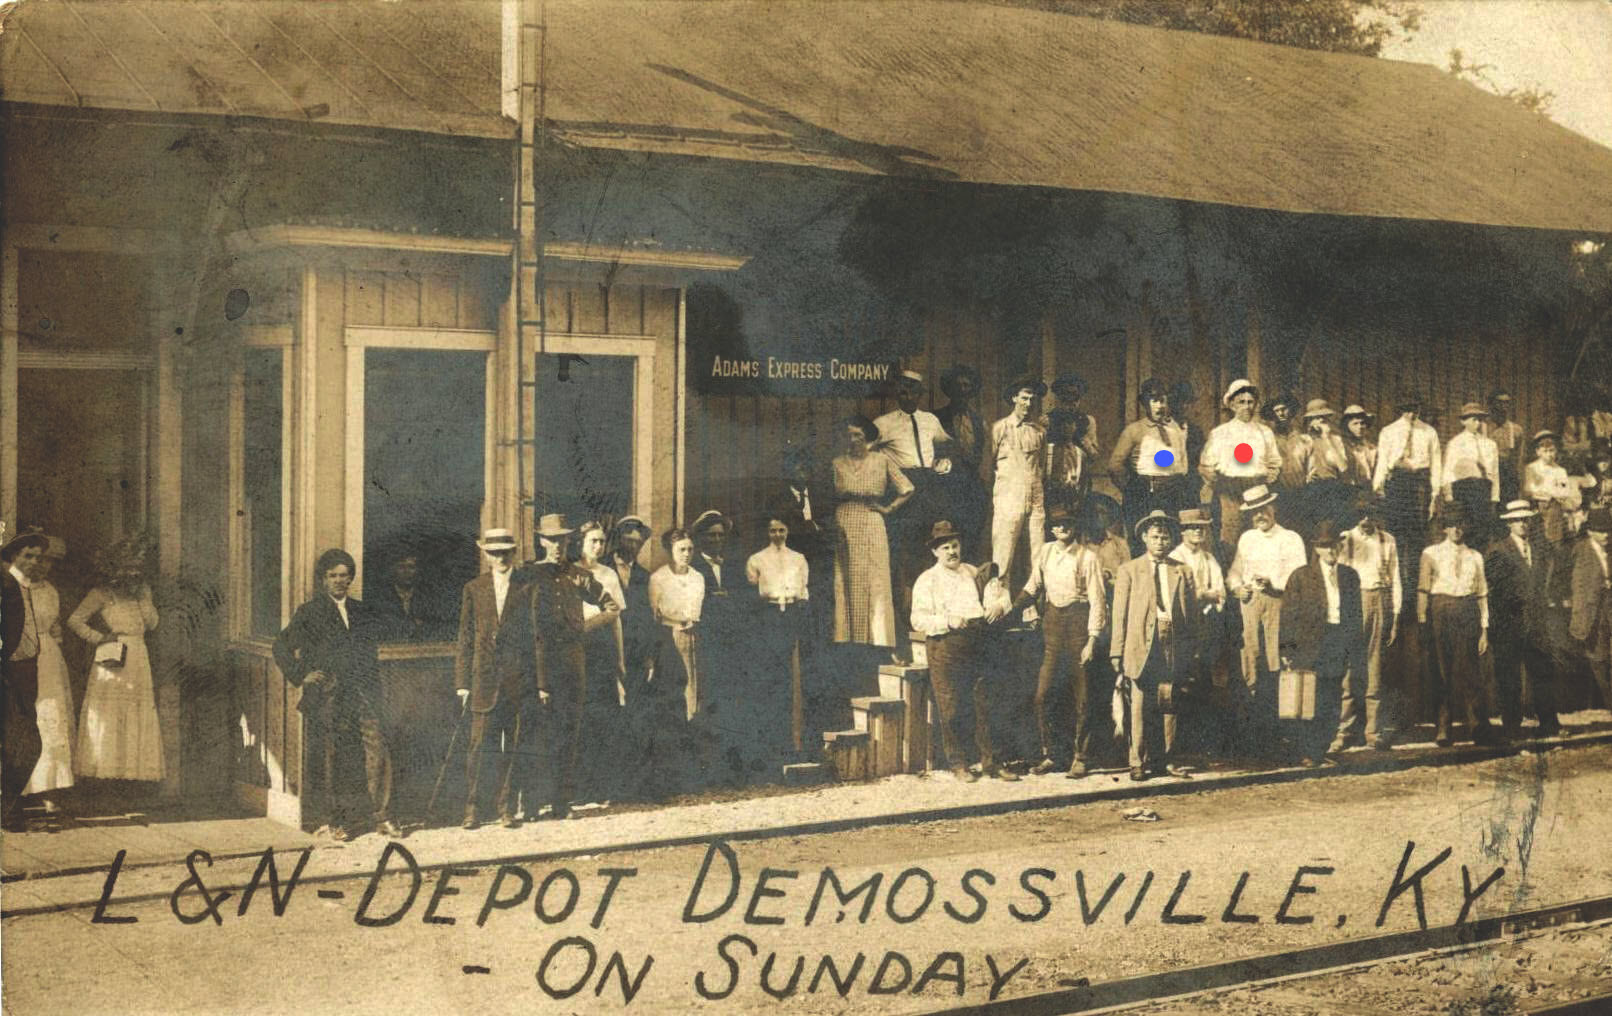 ADAMS EXPRESS COMPANY
L&N-DEPOT DEMOSSVILLE, KY
- ON SUNDAY -